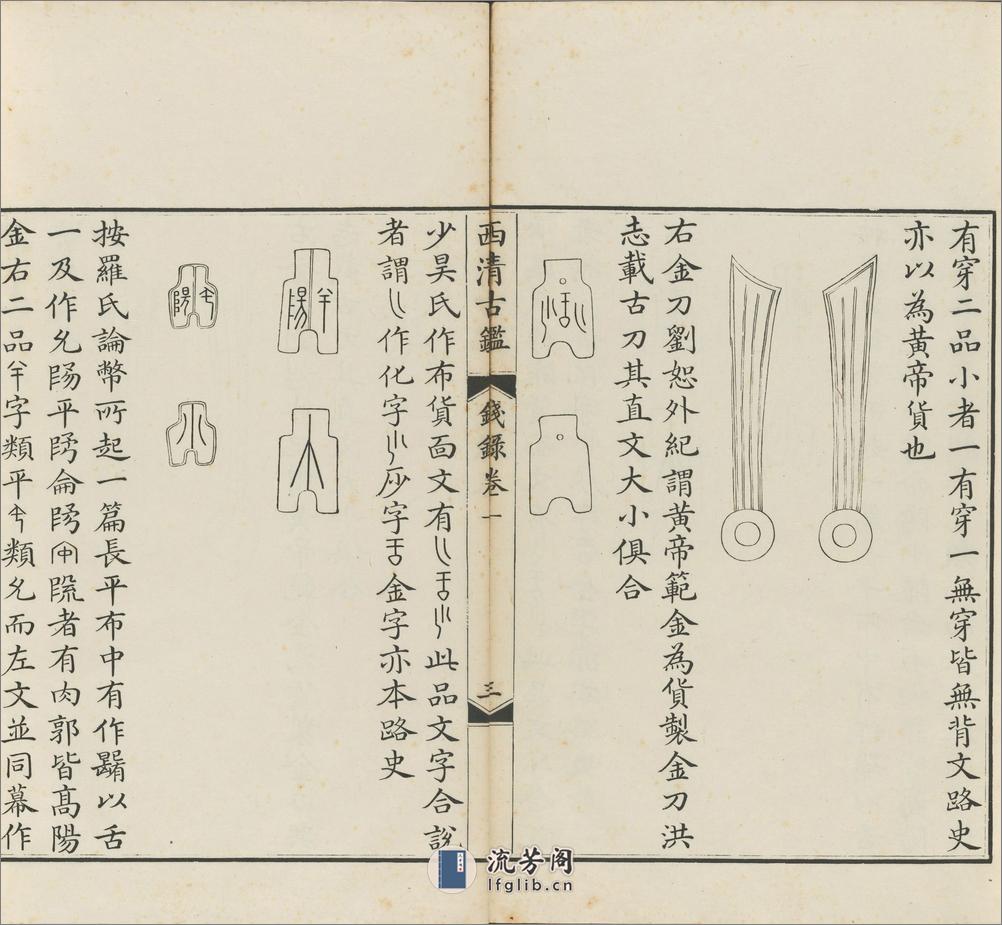 有穿二品小者一有穿一無穿皆無背文路史
亦以為黃帝貨也
右金刀劉恕外紀謂黃帝範金為貨製金刀洪
志載古刀其直文大小俱合
西清古鑑
錢錄卷一
三
少昊氏作布貨面文有 此品文字合說
者謂 作化字 字 金字亦本路史
按羅氏論幣所起一篇長平布中有作 以舌
一及作 平 侖 者有肉郭皆高陽
金右二品 字類平 類 而左文並同幕作
流芳阁
lfglib.cn